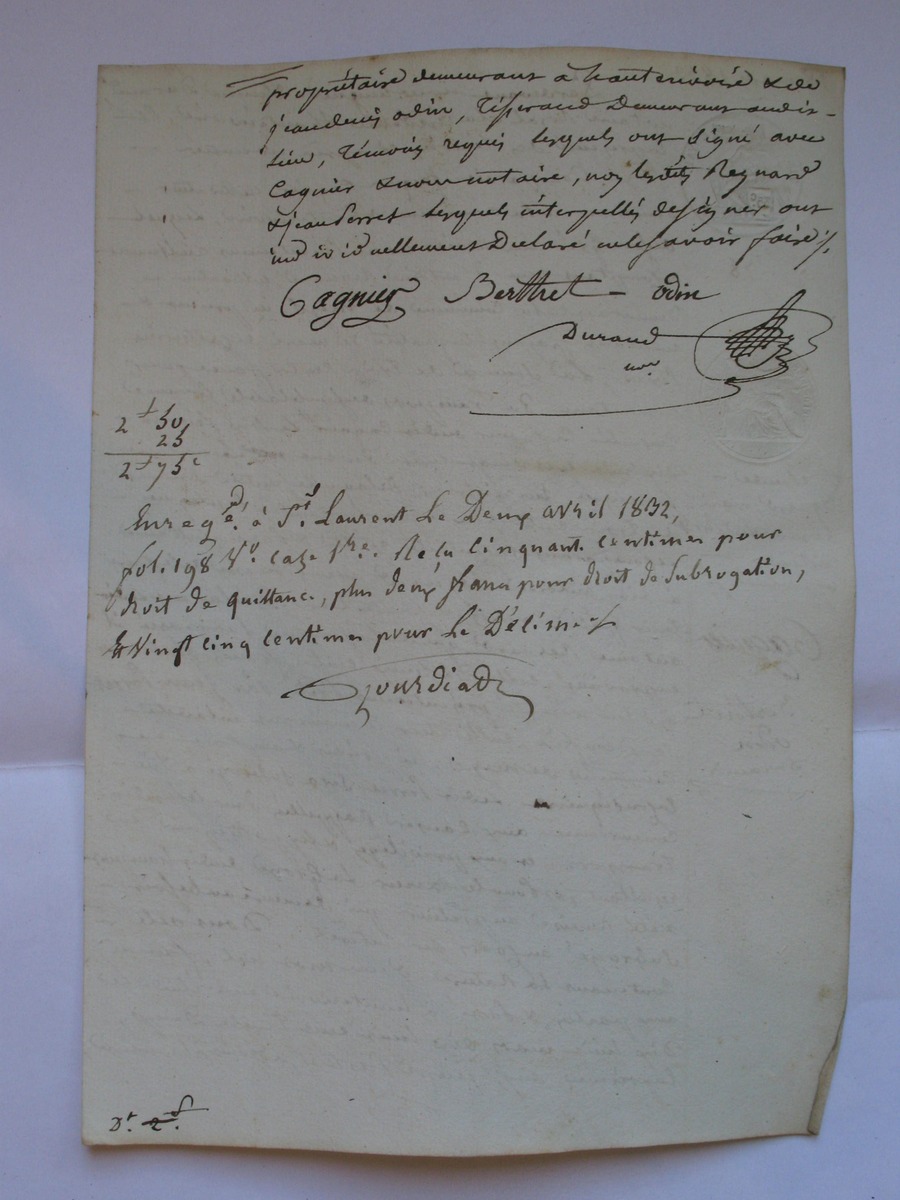 propriétaire demeurant à hauterivoire & de
jean denis odin, Tisserand Demeurant audit-
Lieu, Témoins requis lesquels ont signé avec
Cagnier & nous notaire, non lesdits Reynard
& jean Perret lesquels interpellés de signer ont
individuellement Declaré ne le savoir faire
Cagnier Berthet - odin
Durand
nore
2 f 50
25
2 f 75 c
Enregé. à St. Laurent Le Deux avril 1832,
fol. 198 Vo. case 1re. Reçu Cinquante Centimes pour
droit de quittance, plus deux francs pour droit de Subrogation,
Et Vingt cinq Centimes pour Le Décime
Gourdiad
Dt. 2f.